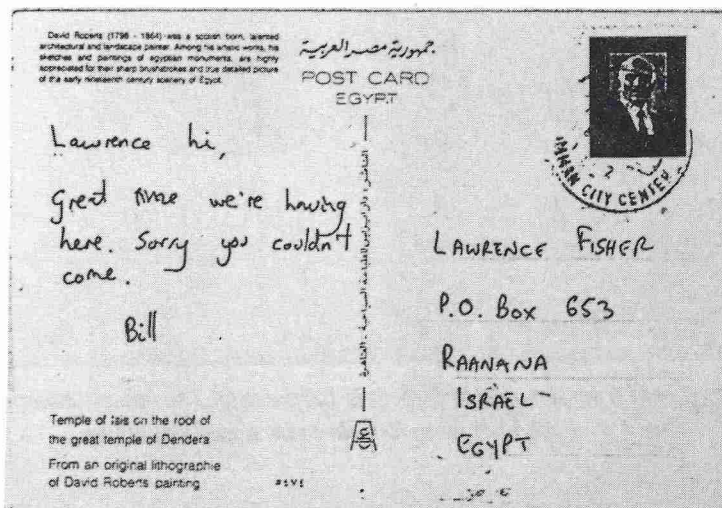 David Roberts (1796 - 1864) was a scotish born, talented
architectural and landscape painter. Among his artistic works, his
sketches and paintings of egyptian monuments, are highly
appreciated for their sharp brushstrokes and true detailed picture
of the early nineteenth century scenery of Egypt.
جمهورية مصر العربية
POST CARD
EGYPT
Lawrence hi,
Great time we're having
here. Sorry you couldn't
come.
Bill
CITY CENTER
LAWRENCE FISHER
P.O. Box 653
RAANANA
ISRAEL
EGYPT
Temple of Isis on the roof of
the great temple of Dendera
From an original lithographie
of David Roberts painting